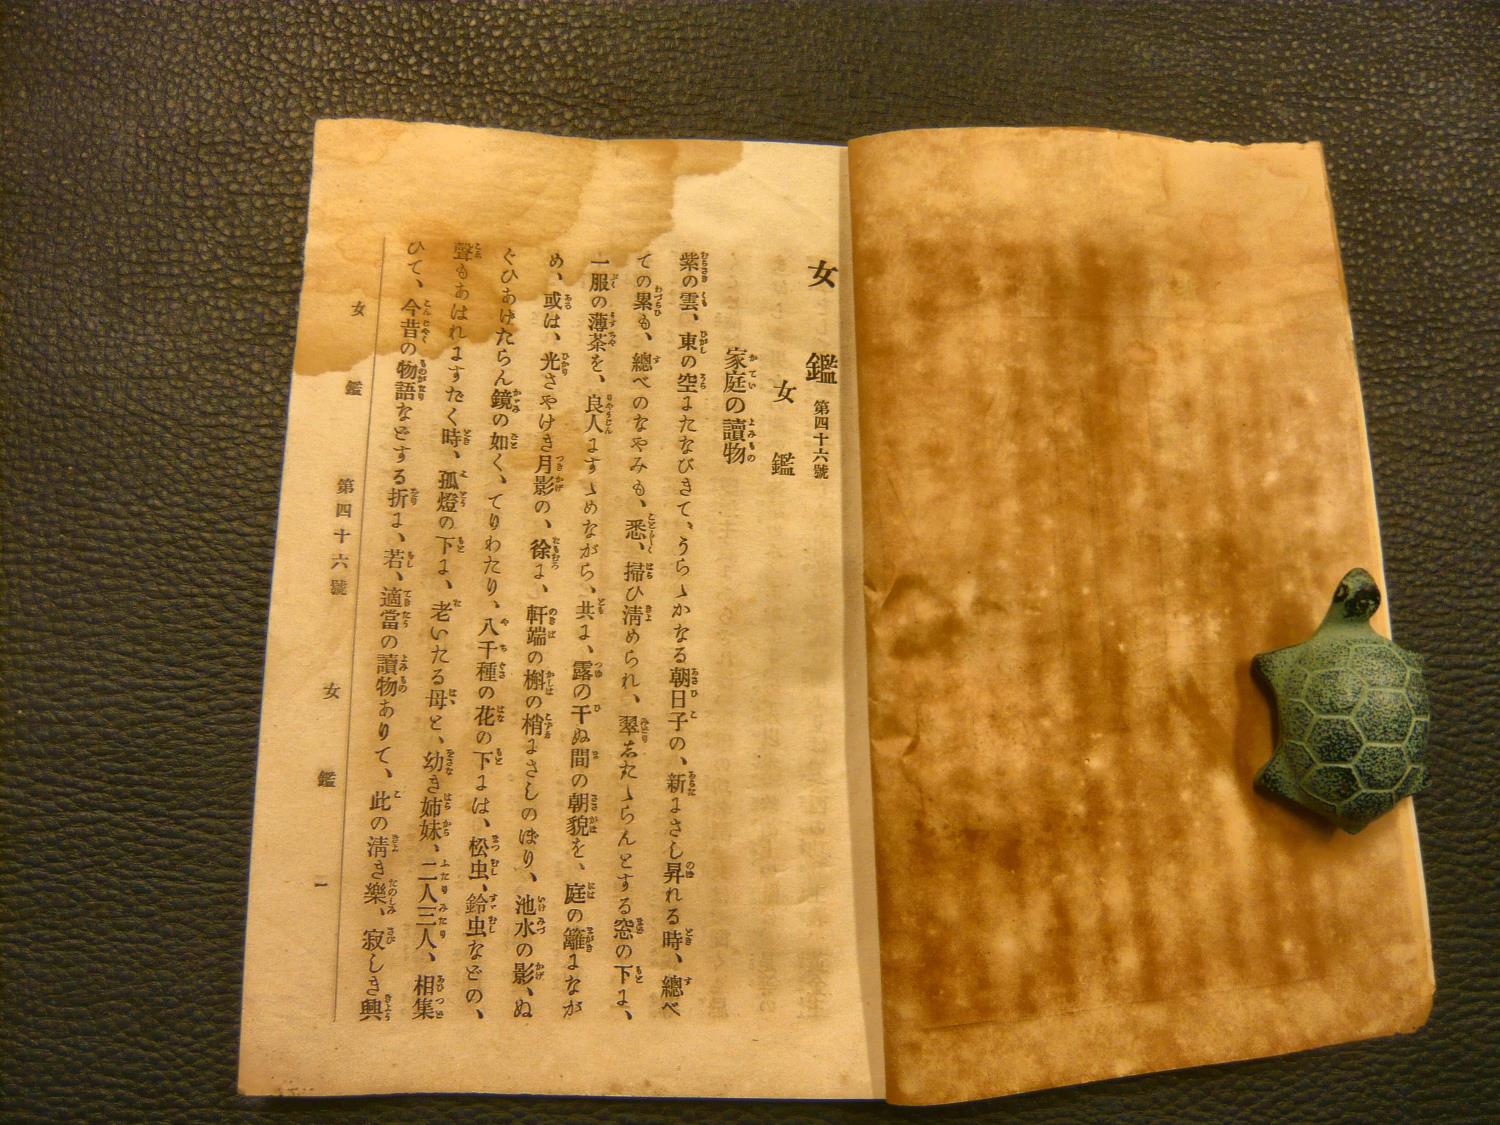 女鑑 第四十六號
女鑑
家庭の讀物
紫の雲、東の空またなびきて、うらゝかなる朝日子の、新まさし昇れる時、總べ
ての累も、總べのなやみも、悉、掃ひ淸められ、翠あたゝらんとする窓の下ま、
一服の薄茶を、良人ますゝめながら、共ま、露の干ぬ間の朝貌を、庭の籬まなが
め、或は、光さやけき月影の、徐ま、軒端の槲の梢まさしのぼり、池水の影、ぬ
ぐひあげたらん鏡の如く、てりわたり、八千種の花の下まは、松虫、鈴虫などの、
聲もあはれますだく時、孤燈の下ま、老いたる母と、幼き姉妹、二人三人、相集
ひて、今昔の物語などする折ま、若、適當の讀物ありて、此の淸き樂、寂しき興
女鑑 第四十六號 女鑑 一